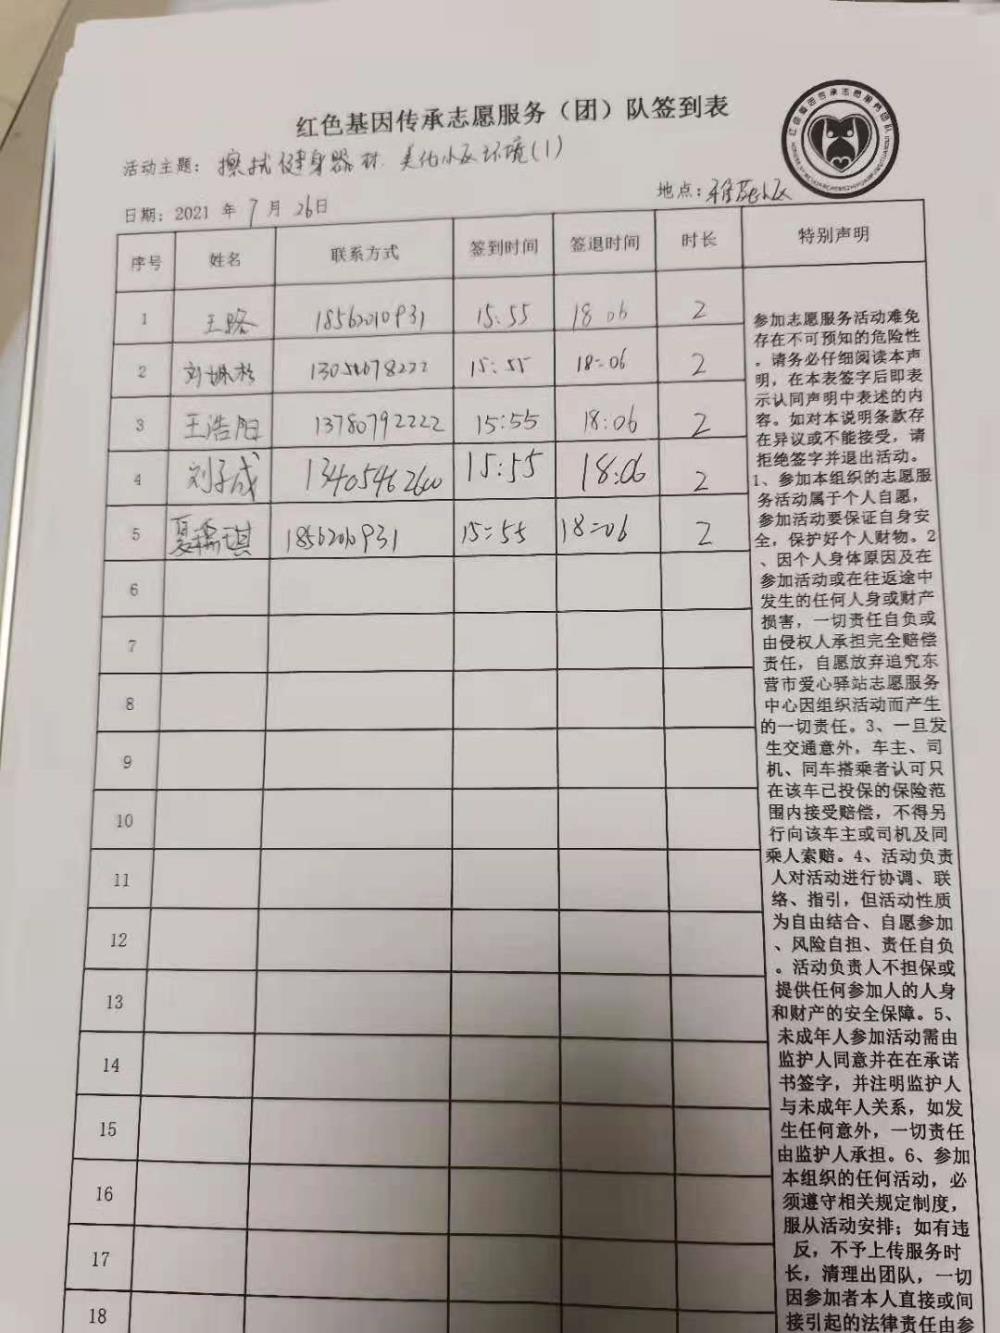 红色基因传承志愿服务（团）队签到表
活动主题：擦拭健身器材 美化小区环境(1)
日期：2021 年 7 月 26日 地点：雅苑小区
序号 姓名 联系方式 签到时间 签退时间 时长 特别声明
1 王路 18562010931 15:55 18 06 2
2 刘 13054678222 15:55 18:06 2
3 王浩阳 13780792222 15:55 18:06 2
4 刘子成 13405462600 15:55 18:06 2
5 夏 琪 18562010931 15:55 18:06 2
6
7
8
9
10
11
12
13
14
15
16
17
18
参加志愿服务活动难免
存在不可预知的危险性
。请务必仔细阅读本声
明，在本表签字后即表
示认同声明中表述的内
容。如对本说明条款存
在异议或不能接受，请
拒绝签字并退出活动。
1、参加本组织的志愿服
务活动属于个人自愿，
参加活动要保证自身安
全，保护好个人财物。2
、因个人身体原因及在
参加活动或在往返途中
发生的任何人身或财产
损害，一切责任自负或
由侵权人承担完全赔偿
责任，自愿放弃追究东
营市爱心驿站志愿服务
中心因组织活动而产生
的一切责任。3、一旦发
生交通意外，车主、司
机、同车搭乘者认可只
在该车已投保的保险范
围内接受赔偿，不得另
行向该车主或司机及同
乘人索赔。4、活动负责
人对活动进行协调、联
络、指引，但活动性质
为自由结合、自愿参加
、风险自担、责任自负
。活动负责人不担保或
提供任何参加人的人身
和财产的安全保障。5、
未成年人参加活动需由
监护人同意并在在承诺
书签字，并注明监护人
与未成年人关系，如发
生任何意外，一切责任
由监护人承担。6、参加
本组织的任何活动，必
须遵守相关规定制度，
服从活动安排；如有违
反，不予上传服务时
长，清理出团队，一切
因参加者本人直接或间
接引起的法律责任由参